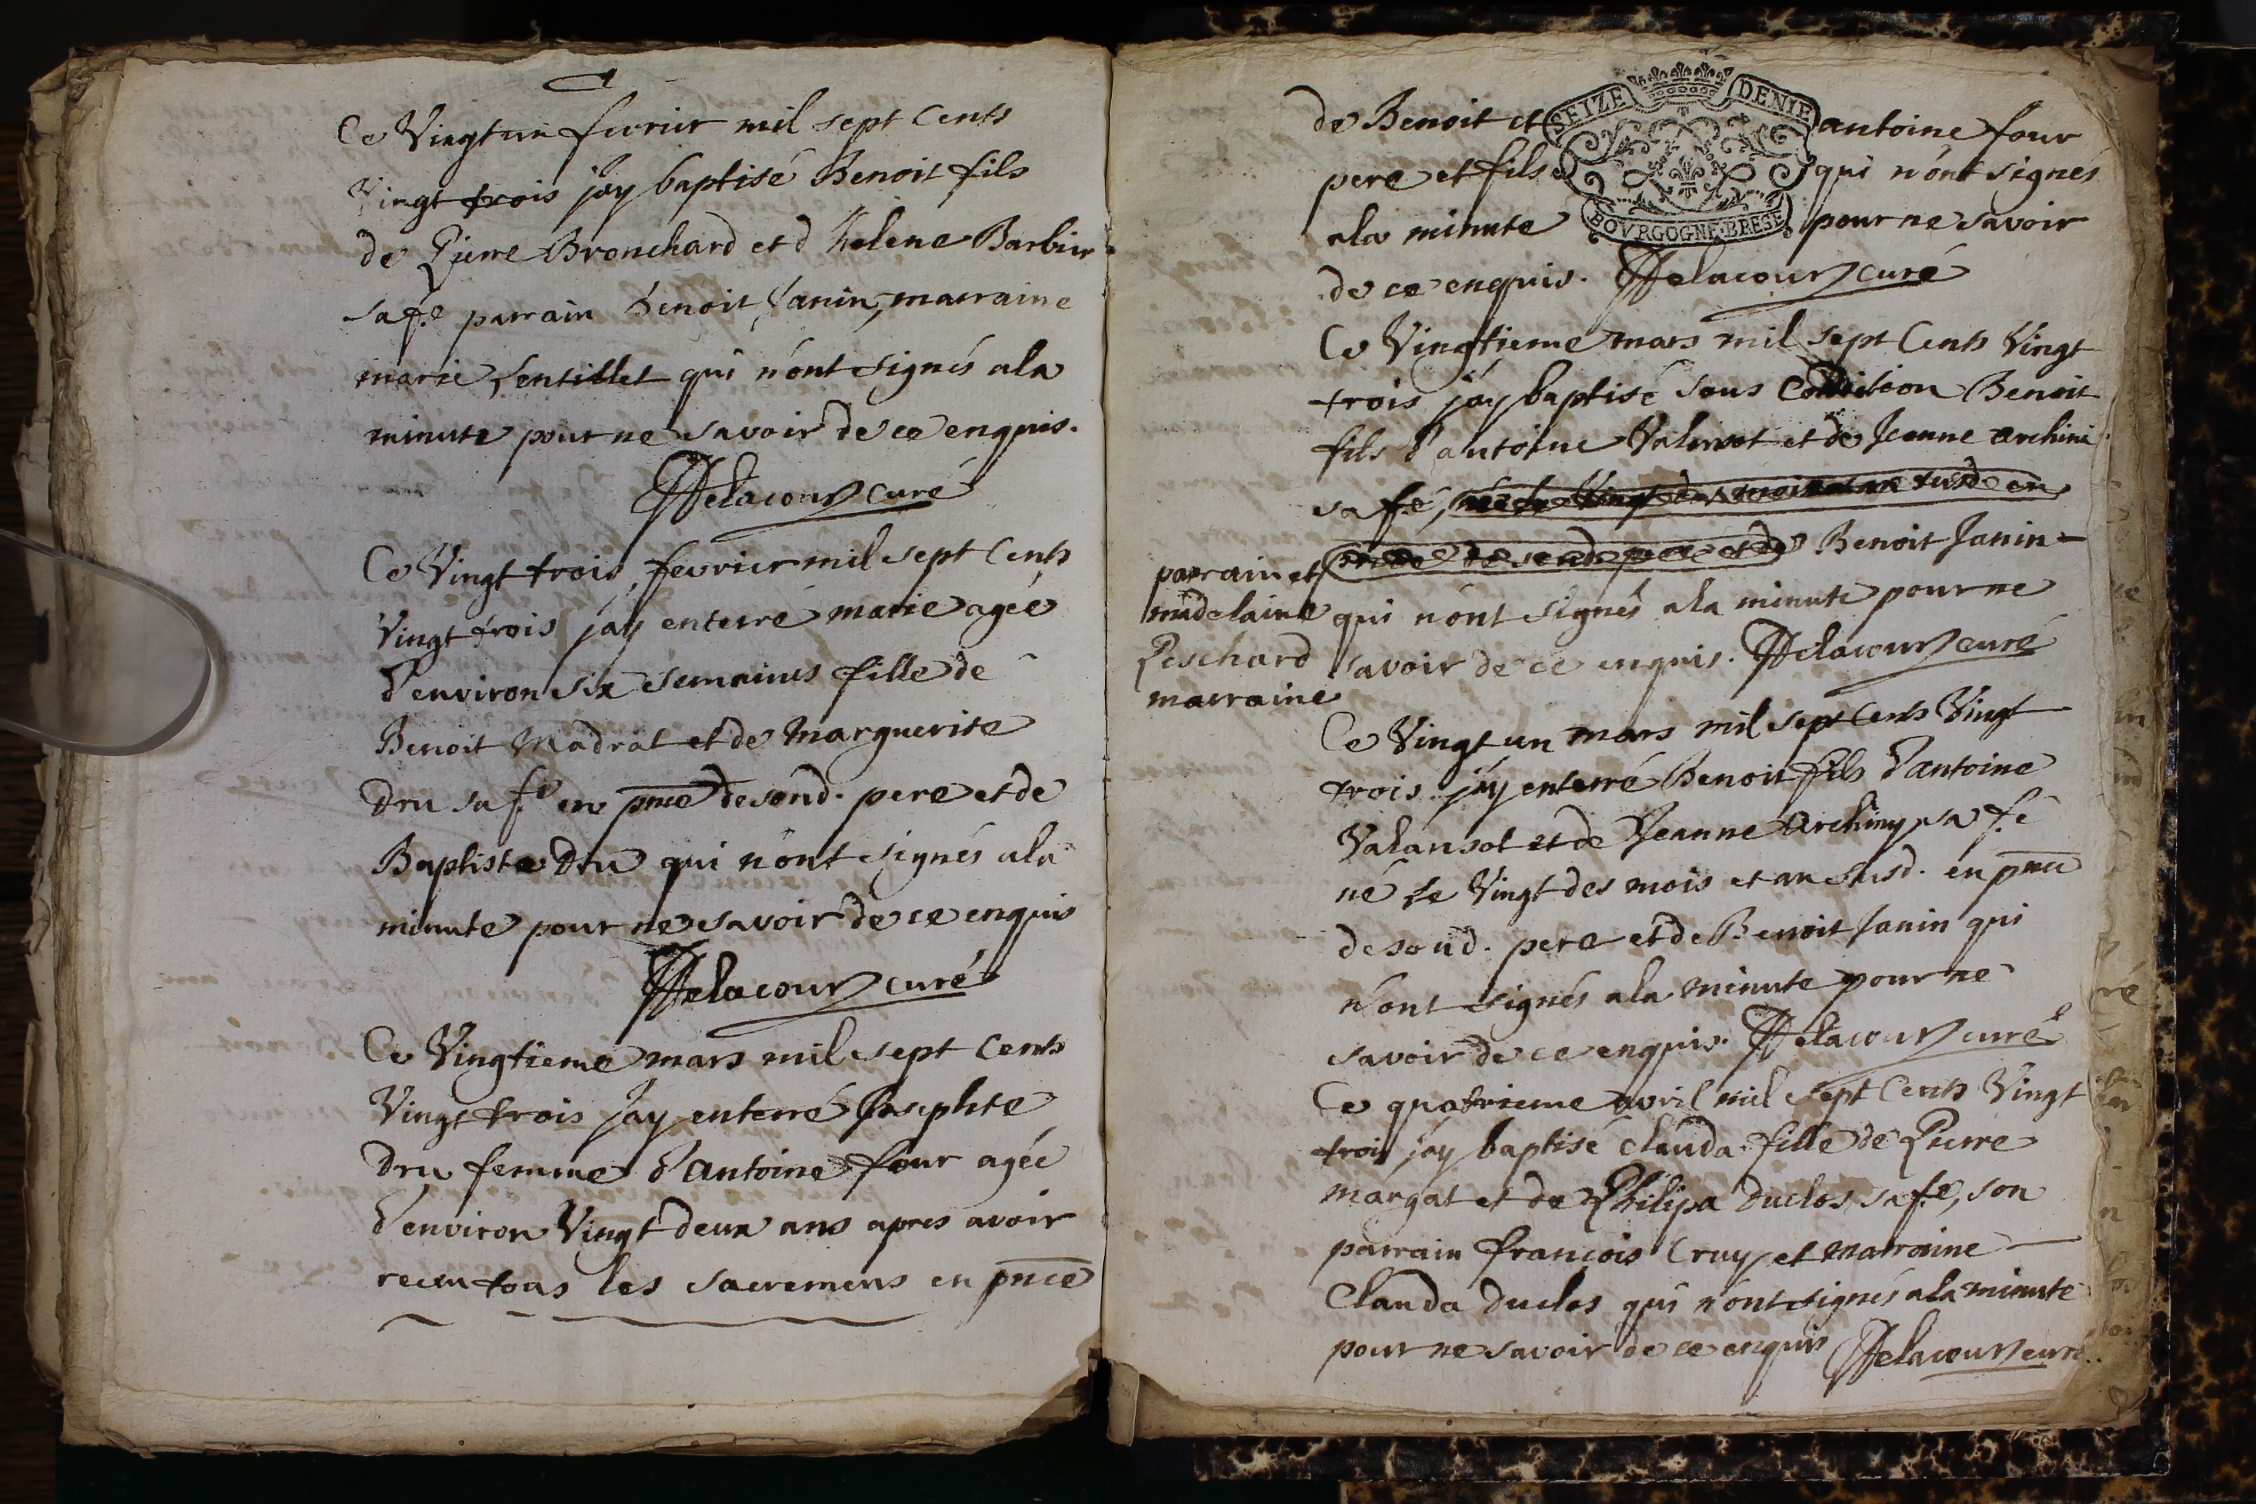 Ce Vingt un fevrier mil sept Cents
Vingt trois jay baptisé Benoit fils
de Pierre Bronchard et d'helene Barbier
sa fe parrain Benoit Janin, marraine
marie Sentillet qui n'ont signés ala
minute pour ne savoir de ce enquis.
Delacour curé
Ce Vingt trois fevrier mil sept Cents
Vingt trois jay enterré marie agée
d'environ six semaines fille de
Benoit Madrat et de Marguerite
Dru sa fe en pnce de sond. pere et de
Baptiste Dru qui n'ont signés ala
minute pour ne savoir de ce enquis
Delacour curé
Ce Vingtieme mars mil sept Cents
Vingt trois jay enterré Josephte
Dru femme d'antoine four agée
d'environ Vingt deux ans apres avoir
recu tous les sacremens en pnce
de Benoit et antoine four
SEIZE DENIE
pere et fils qui n'ont signés
ala minute pour ne savoir
BOVRGOGNE·BRESE
de ce enquis. Delacour curé
Ce Vingtieme mars mil sept Cents Vingt
trois jay baptisé sous Condition Benoit
fils d'antoine Valensot et de Jeanne archini
sa fe,
Benoit Janin
parrain et
madelaine
Peschard
marraine
qui n'ont signés ala minute pour ne
savoir de ce enquis. Delacour curé
Ce Vingt un mars mil sept Cents Vingt
trois jay enterré Benoit fils d'antoine
Valansot et de Jeanne Archiny sa fe
né le Vingt des mois et an susd. en pnce
de sond. pere et de Benoit Janin qui
n'ont signés ala minute pour ne
savoir de ce enquis. Delacour curé
Ce quatrieme avril mil sept Cents Vingt
trois jay baptisé Clauda fille de Pierre
margat et de Philipa Duclos sa fe, son
parrain francois Cruy et marraine
Clauda Duclos qui n'ont signés ala minute
pour ne savoir de ce enquis Delacour curé